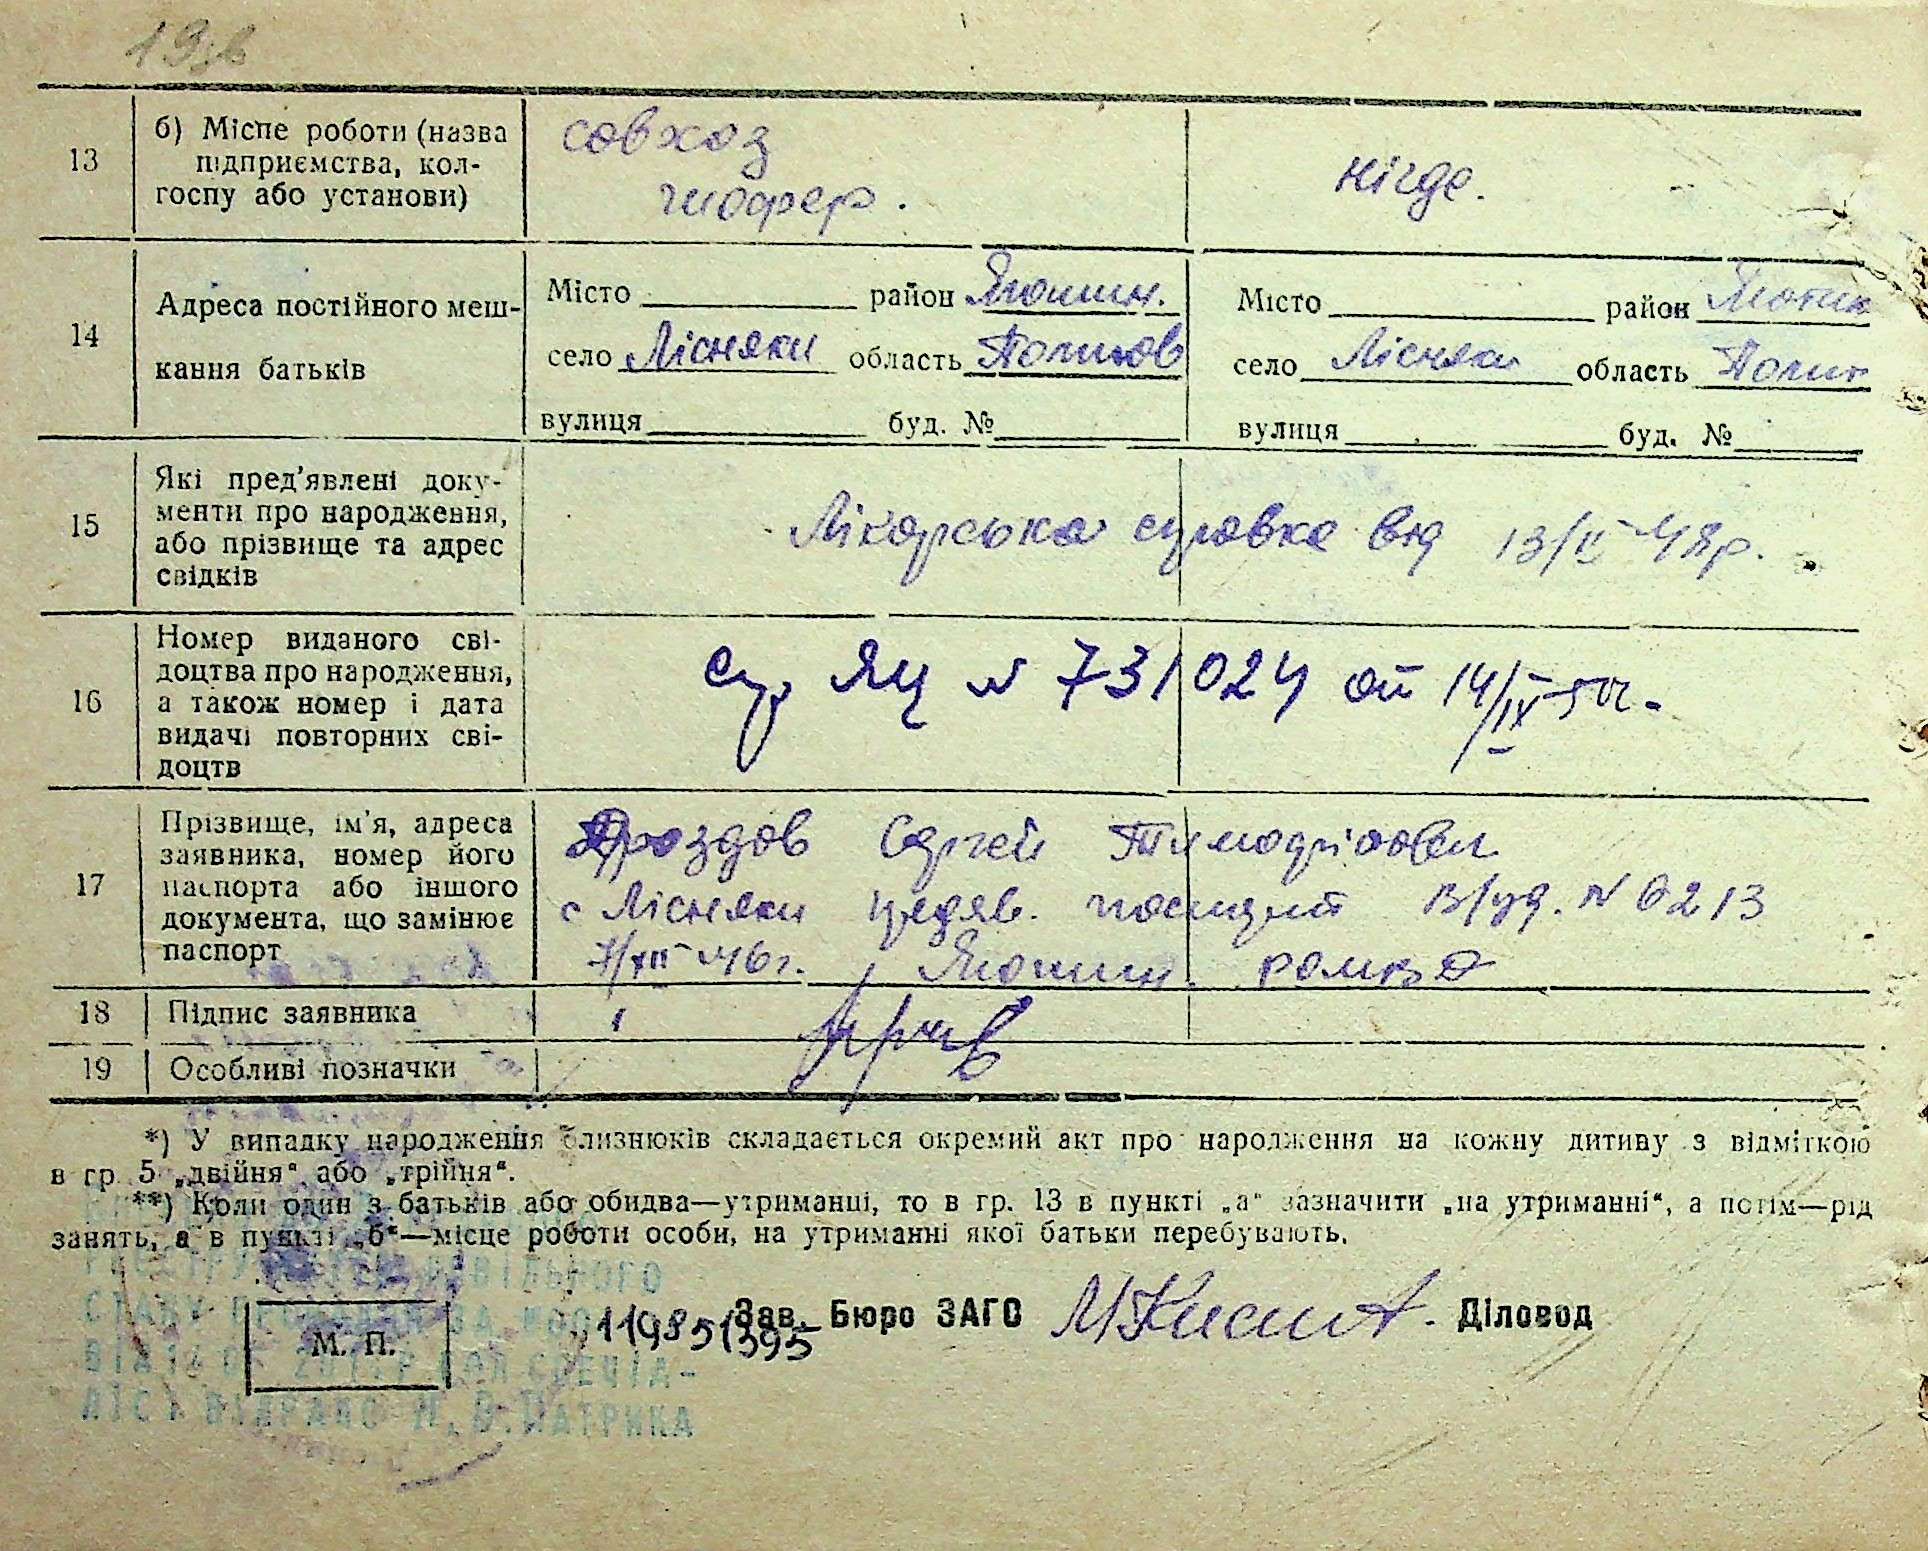 13
б) Місце роботи (назва
підприємства, кол-
госпу або установи)
совхоз
шофер.
нігде.
14
Адреса постійного меш-
кання батьків
Місто район Яготин.
село Лісняки область Полтов
вулиця буд. №
Місто район Яготин
село Лісняки область Полт
вулиця буд. №
15
Які пред'явлені доку-
менти про народження,
або прізвище та адрес
свідків
Лікарська справка від 13/II 48р.
16
Номер виданого сві-
доцтва про народження,
а також номер і дата
видачі повторних сві-
доцтв
ЯЦ № 731024 от 14/IX-50г.
17
Прізвище, ім'я, адреса
заявника, номер його
паспорта або іншого
документа, що замінює
паспорт
Дроздов Сергей
с Лісняки пред'яв. В/уд. N 0213
7/XII-46г. Яготин.
18
Підпис заявника
19
Особливі позначки
*) У випадку народження близнюків складається окремий акт про народження на кожну дитину з відміткою
в гр 5 „двійня“ або „трійня“.
**) Коли один з батьків або обидва—утриманці, то в гр. 13 в пункті „а“ зазначити „на утриманні“, а потім—рід
занять, а в пункті „б“—місце роботи особи, на утриманні якої батьки перебувають.
М. П.
119851395
Зав. Бюро ЗАГС
Діловод